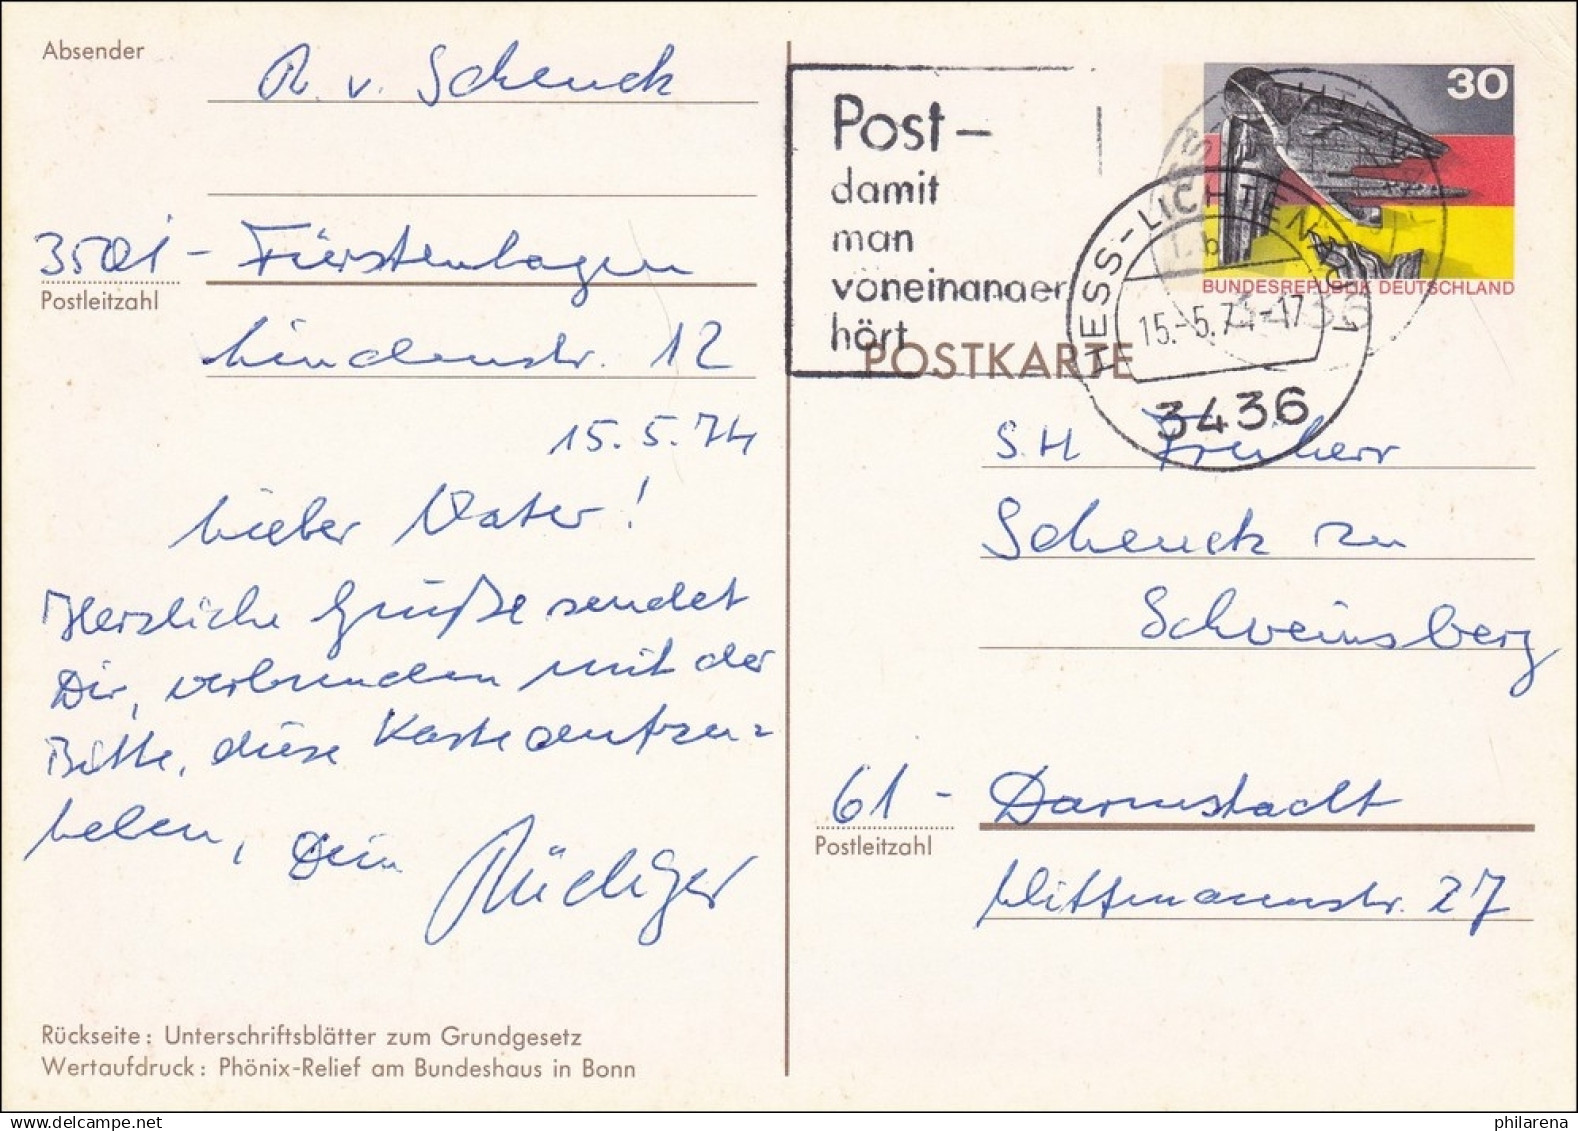 Absender
R. v. Schenck
3501 - Fürstenhagen
Postleitzahl
Lindenstr. 12
15.5.74
Lieber Vater!
Herzliche Grüße sendet
Dir, verbunden mit der
Bitte, diese Karte aufzu=
heben, Dein Rüdiger
Rückseite: Unterschriftsblätter zum Grundgesetz
Wertaufdruck: Phönix-Relief am Bundeshaus in Bonn
Post-
damit
man
voneinander
hört
30
BUNDESREPUBLIK DEUTSCHLAND
HESS-LICHTENAU 1
15.-5.74-17
3436
POSTKARTE
S.H Freiherr
Schenck zu
Schweinsberg
61 - Darmstadt
Postleitzahl
Wittmannstr. 27
philarena